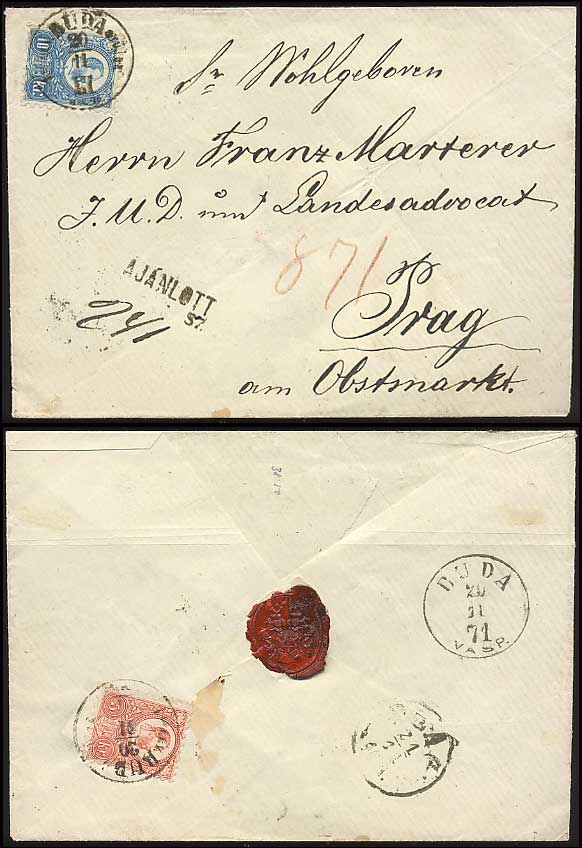 BUDA
20
11
71
Sr Wohlgeboren
Herrn Franz Marterer
J.U.D. und Landesadvocat
871
AJÁNLOTT
57
241
Prag
am Obstmarkt.
BUDA
20
11
71
VASP.
BUD
20
11
21